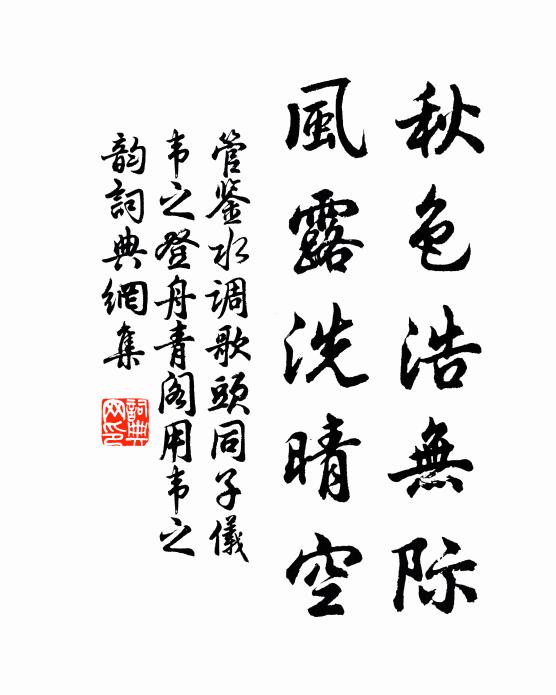 秋色浩無際
風露洗晴空
管鉴水调歌頭同子儀
韦之登舟青阁用韦之
韵詞典網集
詞典
网印